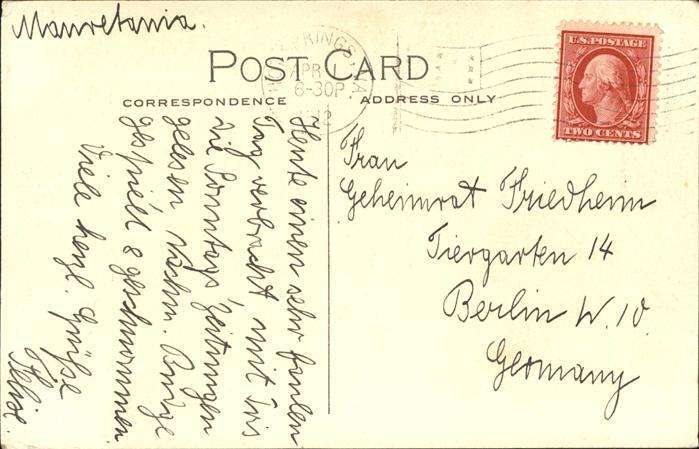 Mauretania.
POST CARD
CORRESPONDENCE
ADDRESS ONLY
SPRINGS, VA.
APR 1
6-30P
U.S. POSTAGE
TWO CENTS
Heute einen sehr faulen
Tag verbracht mit Iris
die Sonntags Zeitungen
gelesen Nachm. Bridge
gespielt & geschwommen
Viele herzl. Grüße
Frau
Geheimrat Friedheim
Tiergarten 14
Berlin W. 10.
Germany